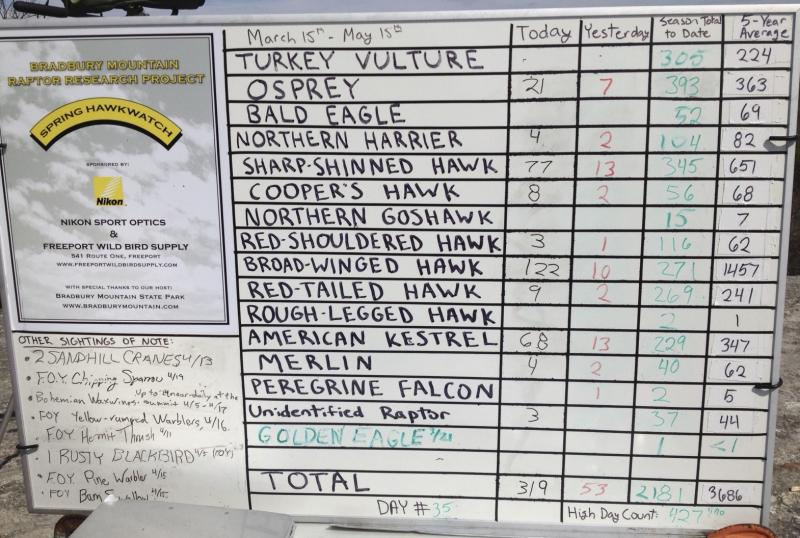 BRADBURY MOUNTAIN
RAPTOR RESEARCH PROJECT
SPRING HAWKWATCH
SPONSORED BY:
Nikon
NIKON SPORT OPTICS
&
FREEPORT WILD BIRD SUPPLY
541 ROUTE ONE, FREEPORT
WWW.FREEPORTWILDBIRDSUPPLY.COM
WITH SPECIAL THANKS TO OUR HOST:
BRADBURY MOUNTAIN STATE PARK
WWW.BRADBURYMOUNTAIN.COM
OTHER SIGHTINGS OF NOTE:
• 2 SANDHILL CRANES 4/13
• F.O.Y. Chipping Sparrow 4/19
• Bohemian Waxwings: up to near-daily at the summit 4/5-4/17
• FOY Yellow-rumped Warblers, 4/16
• F.O.Y. Hermit Thrush 4/11
• 1 RUSTY BLACKBIRD (FOY)
• F.O.Y. Pine Warbler 4/15
• FOY Barn Swallow 4/15
March 15th - May 15th Today Yesterday Season Total to Date 5-Year Average
TURKEY VULTURE . . 305 224
OSPREY 21 7 393 363
BALD EAGLE 52 69
NORTHERN HARRIER 4 2 104 82
SHARP-SHINNED HAWK 77 13 345 651
COOPER'S HAWK 8 2 56 68
NORTHERN GOSHAWK 15 7
RED-SHOULDERED HAWK 3 1 116 62
BROAD-WINGED HAWK 122 10 271 1457
RED-TAILED HAWK 9 2 269 241
ROUGH-LEGGED HAWK 2 1
AMERICAN KESTREL 68 13 229 347
MERLIN 4 2 40 62
PEREGRINE FALCON 1 2 5
Unidentified Raptor 3 37 44
GOLDEN EAGLE 3/21 1 <1
TOTAL 319 53 2181 3686
DAY # 35 High Day Count: 427